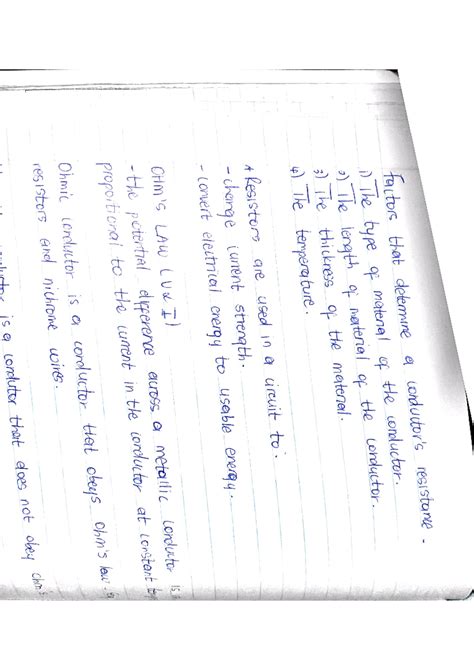 Factors that determine a conductor's resistance -
1) The type of material of the conductor.
2) The length of material of the conductor.
3) The thickness of the material.
4) The temperature.
* Resistors are used in a circuit to:
- change current strength.
- convert electrical energy to usable energy.
Ohm's LAW (V α I)
- the potential difference across a metallic conductor is
proportional to the current in the conductor at constant
Ohmic conductor is a conductor that obeys Ohm's law.
resistors and nichrome wires.
is a condutor that does not obey Ohm